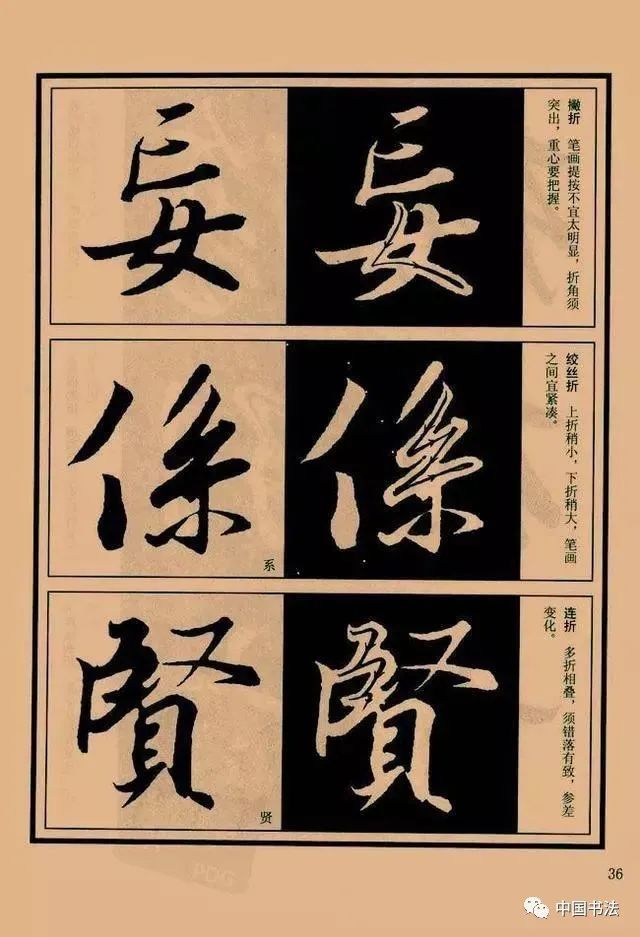 撇折　笔画提按不宜太明显，折角须
突出，重心要把握。
妄
妄
绞丝折　上折稍小，下折稍大，笔画
之间宜紧凑。
係
係
系
连折　多折相叠，须错落有致，参差
变化。
賢
賢
贤
36
PDG
中国书法